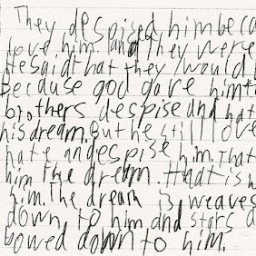 They despised him beca
love him. and they were
He said that they would
Because god gave him t
brothers despise and hat
his dream. But he still love
hate an despise him. That
him the dream. that is w
him. The dream is weaves
down to him and stars a
bowed down to him.